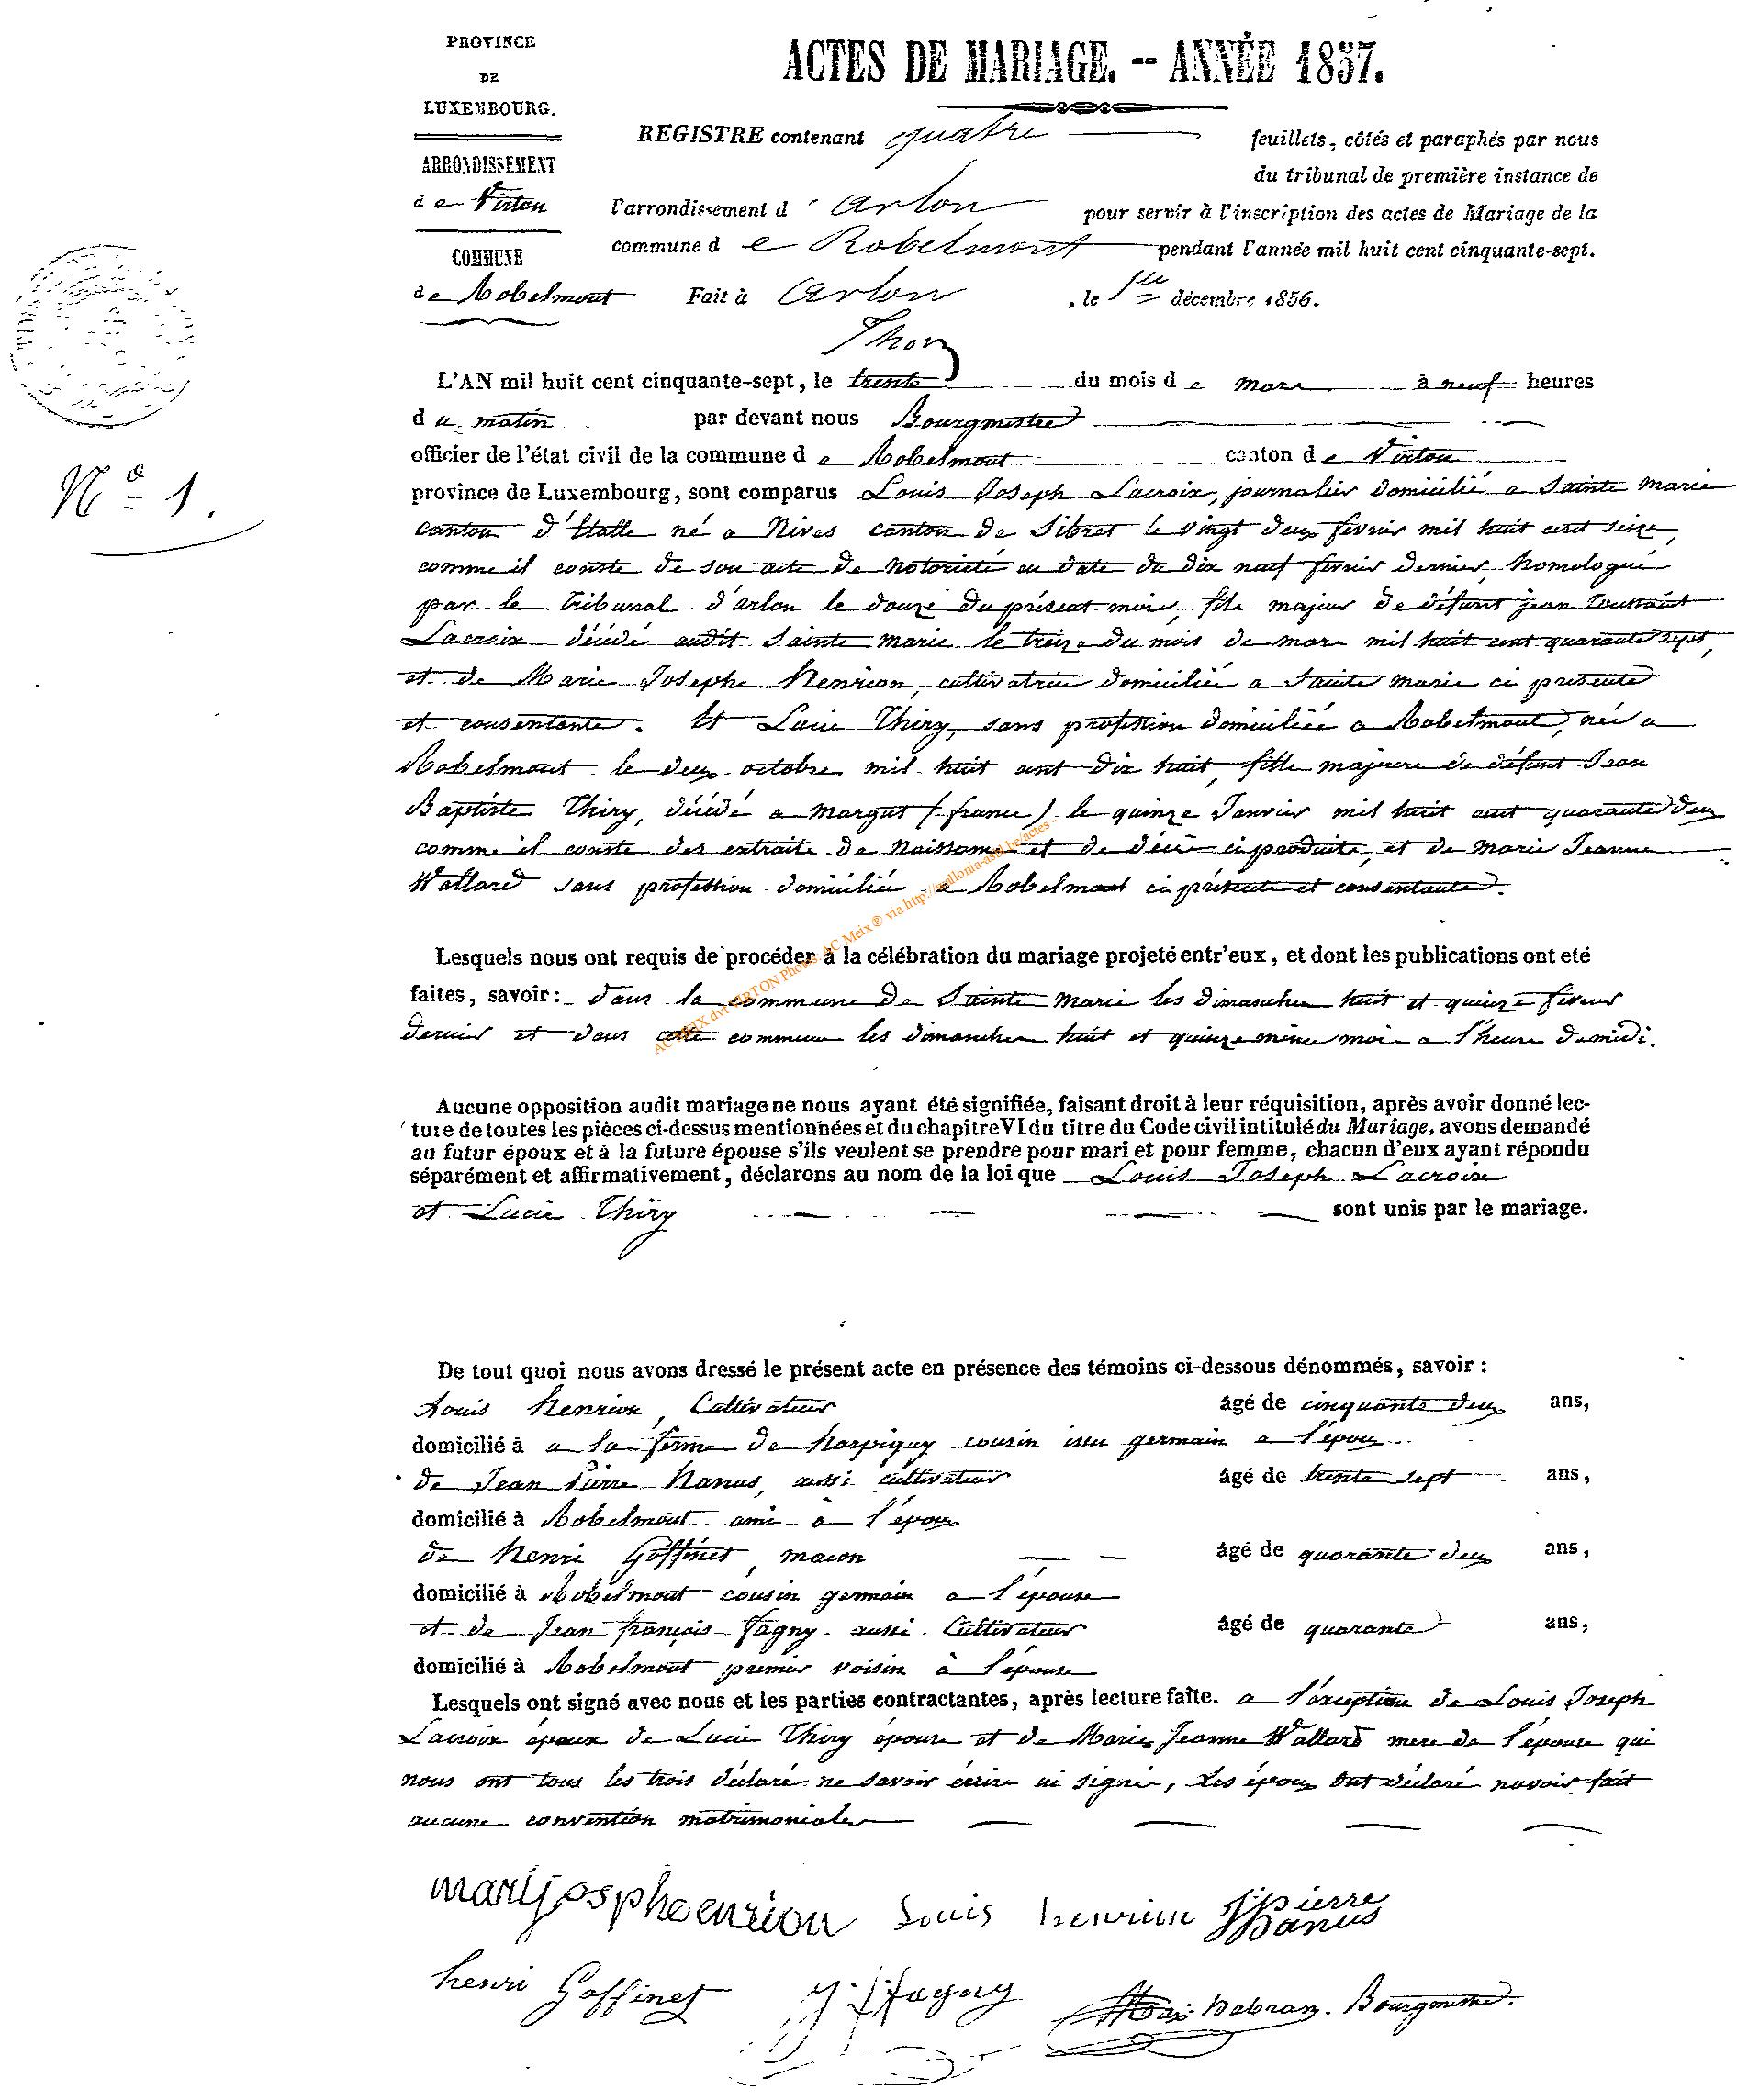 PROVINCE
DE
LUXEMBOURG.
ARRONDISSEMENT
de Virton
COMMUNE
de Robelmont
ACTES DE MARIAGE. -- ANNÉE 1857.
REGISTRE contenant quatre feuillets, côtés et paraphés par nous
du tribunal de première instance de
l'arrondissement d'Arlon pour servir à l'inscription des actes de Mariage de la
commune de Robelmont pendant l'année mil huit cent cinquante-sept.
Fait à Arlon, le 1er décembre 1856.
N° 1.
L'AN mil huit cent cinquante-sept, le trente du mois de mars à neuf heures
du matin par devant nous Bourgmestre
officier de l'état civil de la commune de Robelmont canton de Virton
province de Luxembourg, sont comparus Louis Joseph Lacroix, journalier domicilié a Sainte Marie
canton d'Etalle né a Nives canton de Sibret le vingt deux fevrier mil huit cent seize,
comme il conste de son acte de notorieté en date du dix neuf fevrier dernier, homologué
par le tribunal d'arlon le douze du présent mois, fils majeur de défunt jean Toussaint
Lacroix décédé audit Sainte marie le treize du mois de mars mil huit cent quarante sept,
et de Marie Josephe Henrion, cultivatrice domiciliée a Sainte marie ci presente
et consentante. Et Lucie Thiry, sans profession domiciliée a Robelmont, née a
Robelmont le deux octobre mil huit cent dix huit, fille majeure de défunt Jean
Baptiste Thiry, décédé a margut (france) le quinze Janvier mil huit cent quarante deux
comme il conste des extraits de Naissance et de décès ci produits, et de marie Jeanne
Wattard sans profession domiciliée a Robelmont ci présente et consentante.
Lesquels nous ont requis de procéder à la célébration du mariage projeté entr'eux, et dont les publications ont eté
faites, savoir: dans la commune de Sainte Marie les dimanches huit et quinze fevrier
dernier et dans cette commune les dimanches huit et quinze même mois a l'heure de midi.
AC MEIX dvt VIRTON Photos: AC Meix ® via http://wallonia-asbl.be/actes
Aucune opposition audit mariage ne nous ayant été signifiée, faisant droit à leur réquisition, après avoir donné lec-
ture de toutes les pièces ci-dessus mentionnées et du chapitre VI du titre du Code civil intitulé du Mariage, avons demandé
au futur époux et à la future épouse s'ils veulent se prendre pour mari et pour femme, chacun d'eux ayant répondu
séparément et affirmativement, déclarons au nom de la loi que Louis Joseph Lacroix
et Lucie Thiry sont unis par le mariage.
De tout quoi nous avons dressé le présent acte en présence des témoins ci-dessous dénommés, savoir:
Louis Henrion, Cultivateur âgé de cinquante deux ans,
domicilié à a la ferme de Harpigny cousin issu germain a l'époux
de Jean Pierre Hanus, aussi cultivateur âgé de trente sept ans,
domicilié à Robelmont ami à l'époux
de Henri Goffinet, macon âgé de quarante deux ans,
domicilié à Robelmont cousin germain a l'épouse
et de Jean françois Fagny aussi Cultivateur âgé de quarante ans,
domicilié à Robelmont premier voisin à l'épouse
Lesquels ont signé avec nous et les parties contractantes, après lecture faite. a l'exception de Louis Joseph
Lacroix époux de Lucie Thiry épouse et de Marie Jeanne Wattard mere de l'épouse qui
nous ont tous les trois déclaré ne savoir écrire ni signé, Les époux ont déclaré navoir fait
aucune convention matrimoniale
mari josphe enrion Louis henrion J pierre Hanus
henri Goffinet J. f. fagny Bourgmestre.